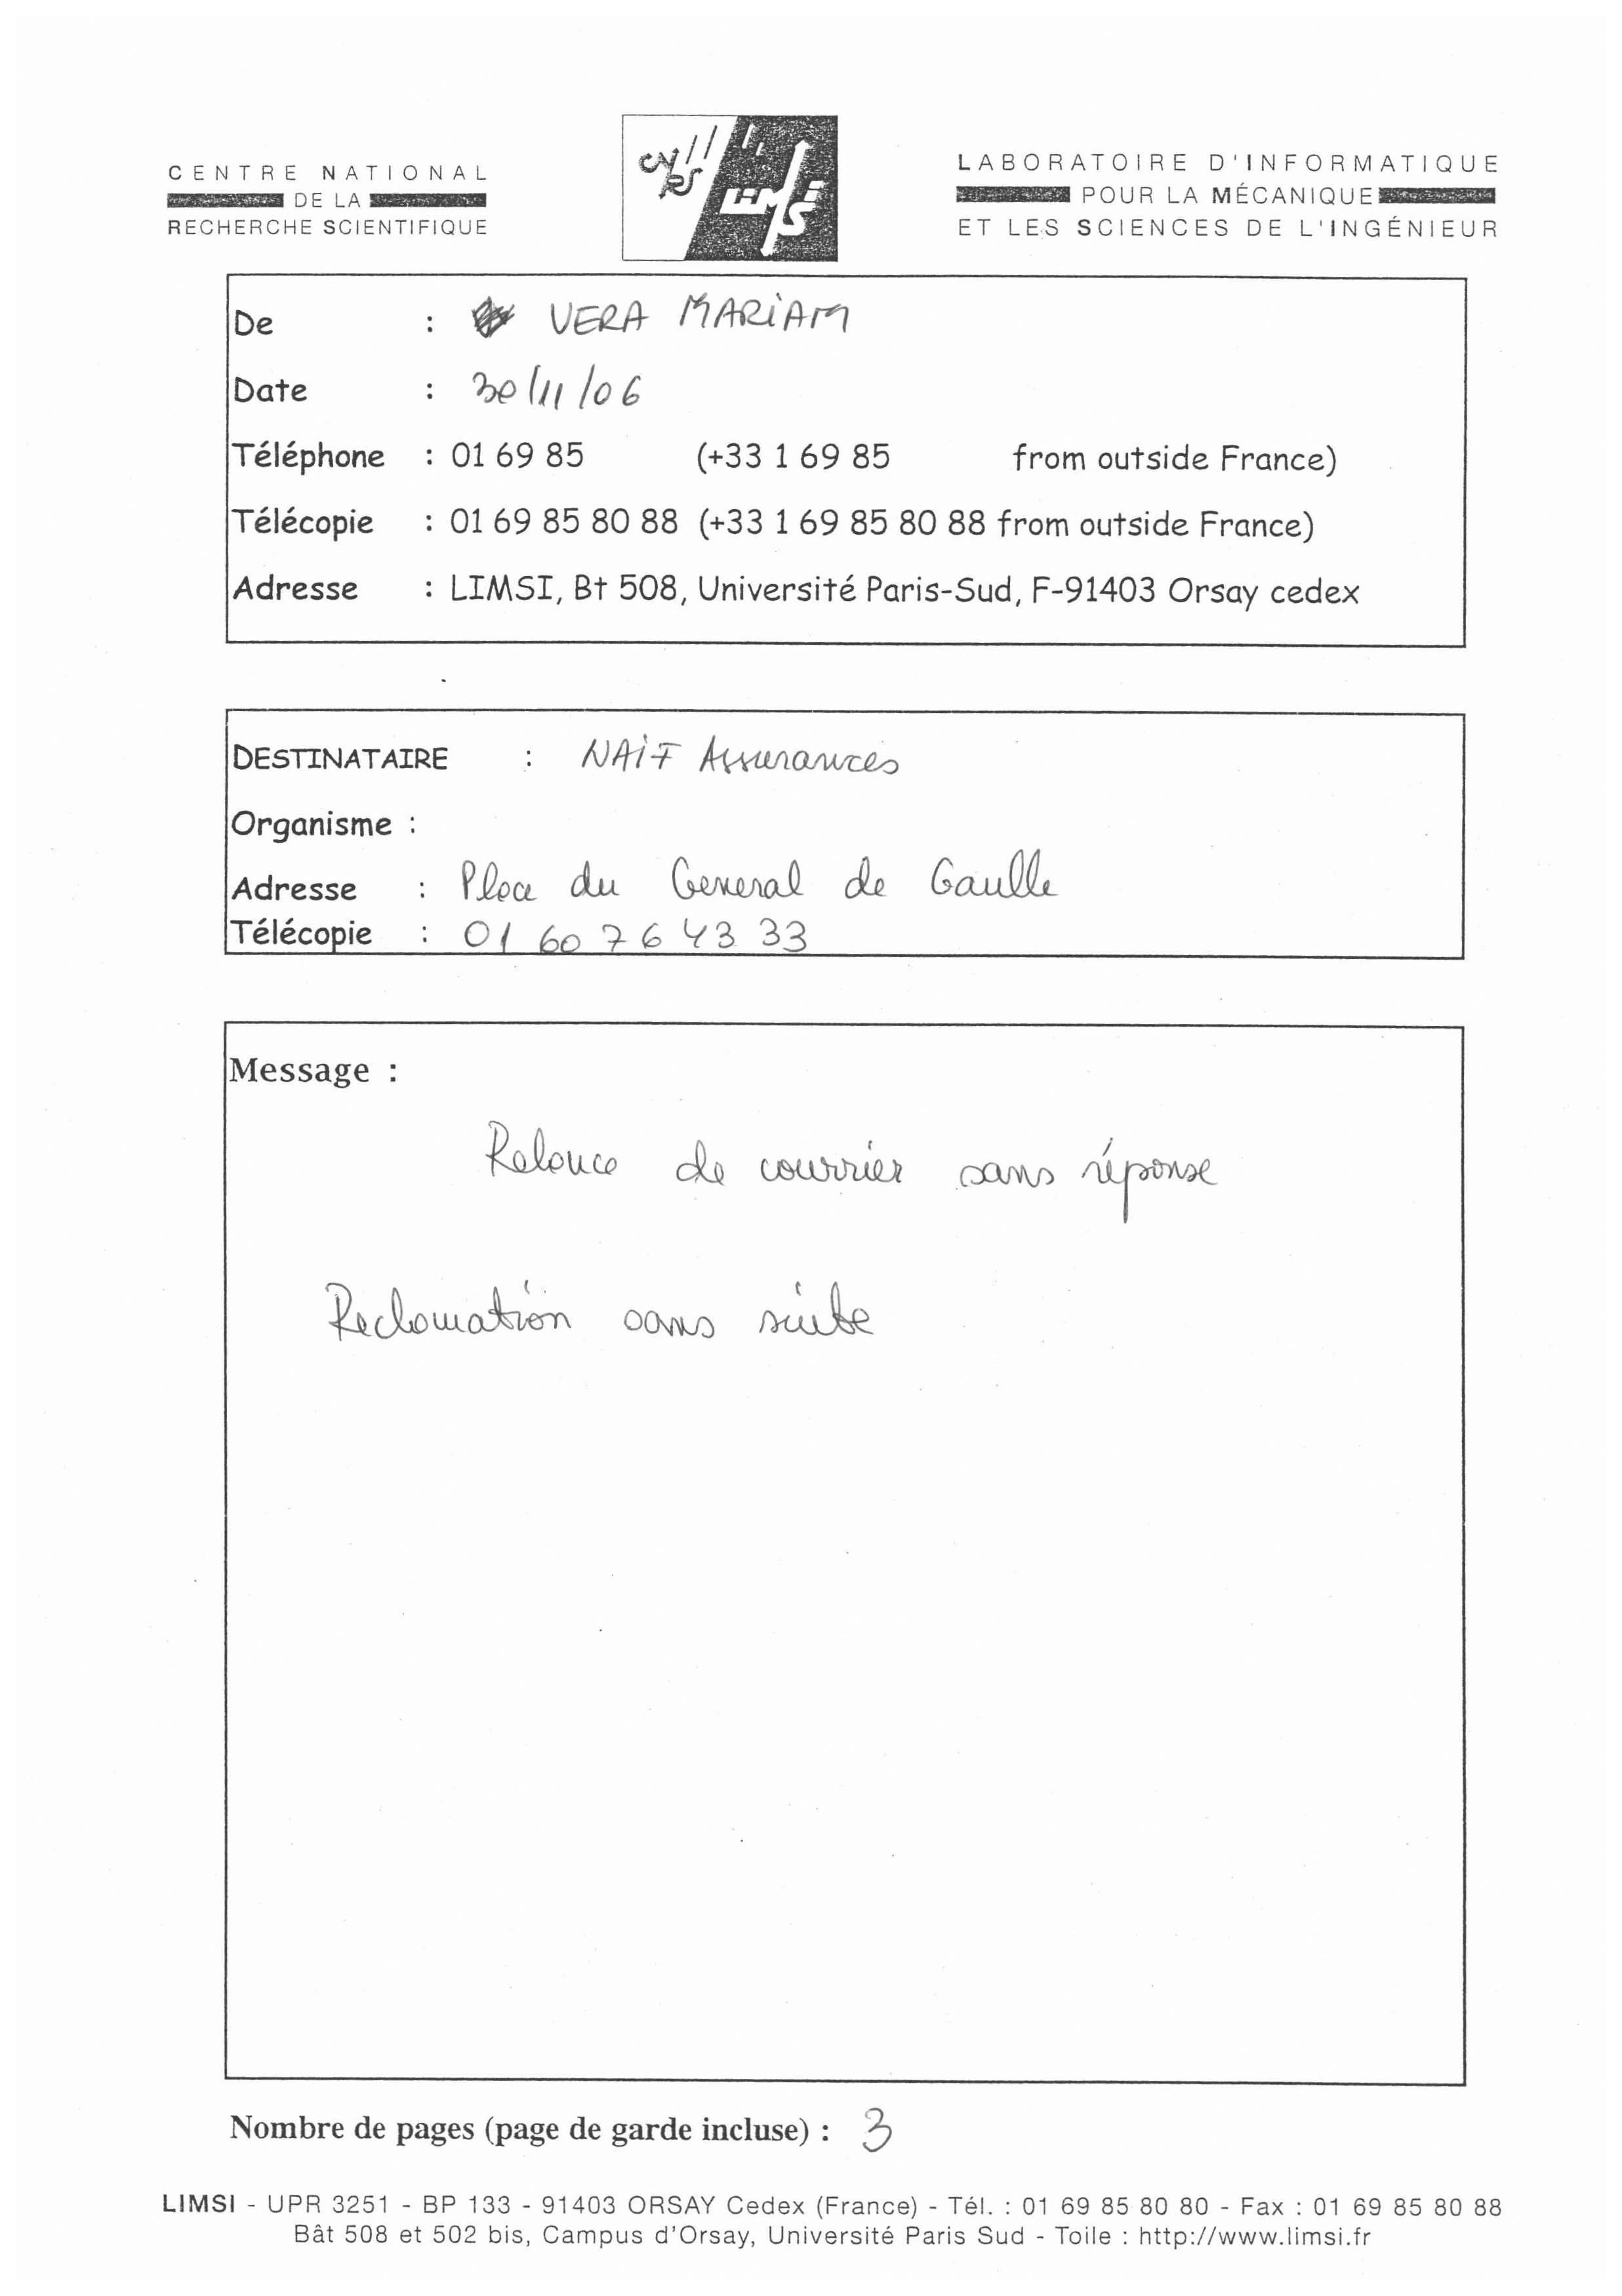 CENTRE NATIONAL
DE LA
RECHERCHE SCIENTIFIQUE
LIMSI
LABORATOIRE D'INFORMATIQUE
POUR LA MÉCANIQUE
ET LES SCIENCES DE L'INGÉNIEUR
De : VERA MARIAM
Date : 30/11/06
Téléphone : 01 69 85 (+33 1 69 85 from outside France)
Télécopie : 01 69 85 80 88 (+33 1 69 85 80 88 from outside France)
Adresse : LIMSI, Bt 508, Université Paris-Sud, F-91403 Orsay cedex
DESTINATAIRE : NAIF Assurances
Organisme :
Adresse : Place du General de Gaulle
Télécopie : 01 60 76 43 33
Message :
Relance de courrier sans réponse
Reclamation sans suite
Nombre de pages (page de garde incluse) : 3
LIMSI - UPR 3251 - BP 133 - 91403 ORSAY Cedex (France) - Tél. : 01 69 85 80 80 - Fax : 01 69 85 80 88
Bât 508 et 502 bis, Campus d'Orsay, Université Paris Sud - Toile : http://www.limsi.fr